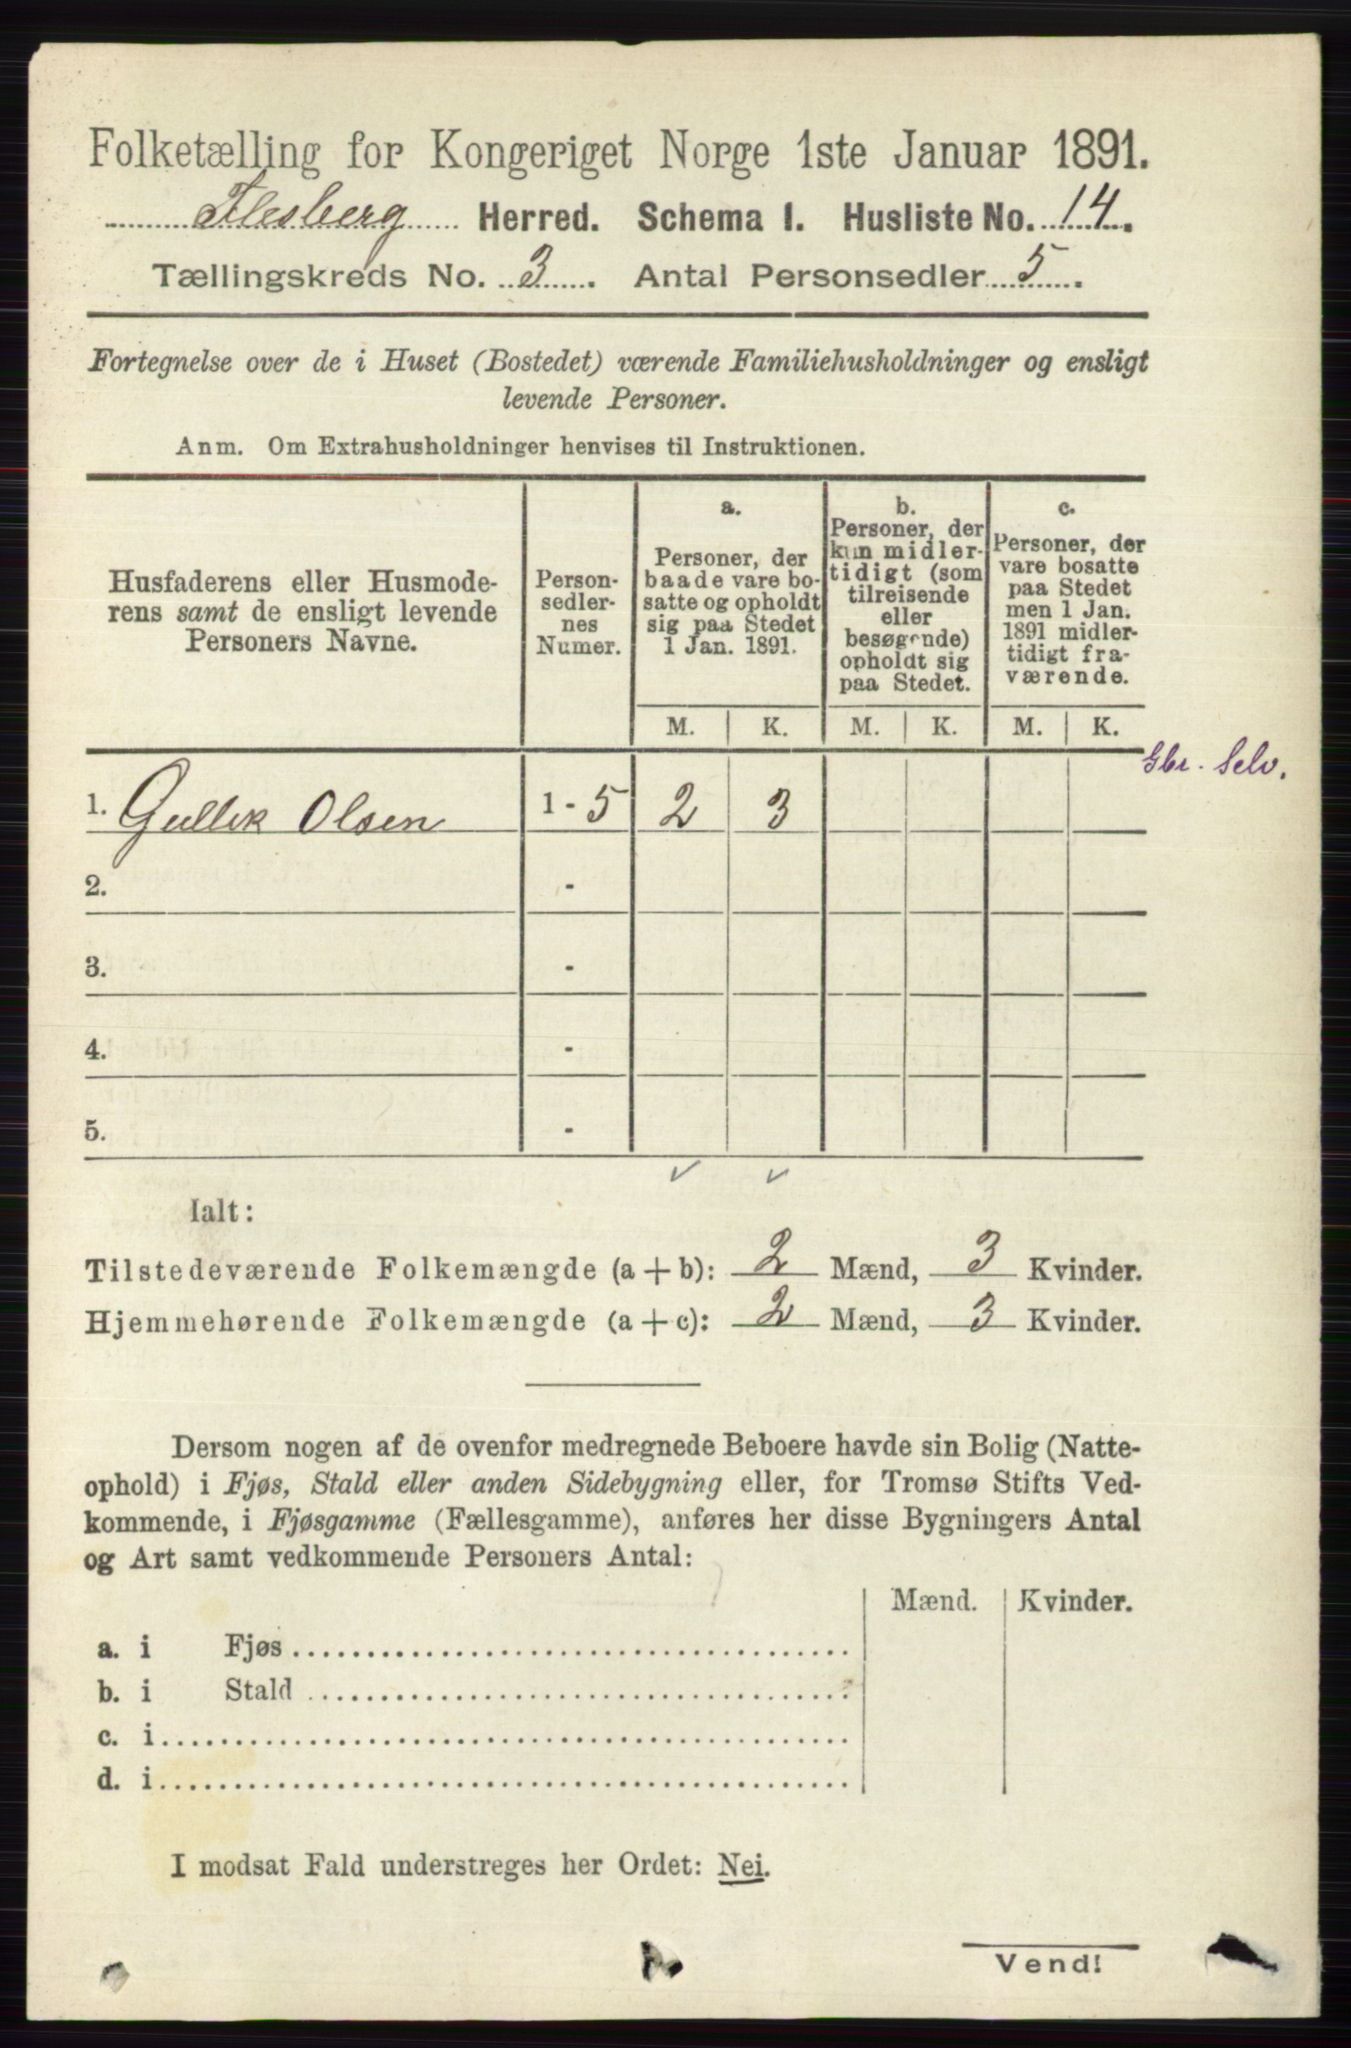 Folketælling for Kongeriget Norge 1ste Januar 1891.
Flesberg Herred. Schema I. Husliste No. 14.
Tællingskreds No. 3. Antal Personsedler 5.
Fortegnelse over de i Huset (Bostedet) værende Familiehusholdninger og ensligt
levende Personer.
Anm. Om Extrahusholdninger henvises til Instruktionen.
Husfaderens eller Husmode-
rens samt de ensligt levende
Personers Navne.
Person-
sedler-
nes
Numer.
a.
Personer, der
baade vare bo-
satte og opholdt
sig paa Stedet
1 Jan. 1891.
b.
Personer, der
kun midler-
tidigt (som
tilreisende
eller
besøgende)
opholdt sig
paa Stedet.
c.
Personer, der
vare bosatte
paa Stedet
men 1 Jan.
1891 midler-
tidigt fra-
værende.
M. K. M. K. M. K.
Gbr. Selv.
1. Gullik Olsen 1 - 5 2 3
2. -
3. -
4. -
5. -
Ialt:
Tilstedeværende Folkemængde (a + b): 2 Mænd, 3 Kvinder.
Hjemmehørende Folkemængde (a + c): 2 Mænd, 3 Kvinder.
Dersom nogen af de ovenfor medregnede Beboere havde sin Bolig (Natte-
ophold) i Fjøs, Stald eller anden Sidebygning eller, for Tromsø Stifts Ved-
kommende, i Fjøsgamme (Fællesgamme), anføres her disse Bygningers Antal
og Art samt vedkommende Personers Antal:
Mænd. Kvinder.
a. i Fjøs
b. i Stald
c. i
d. i
I modsat Fald understreges her Ordet: Nei.
Vend!